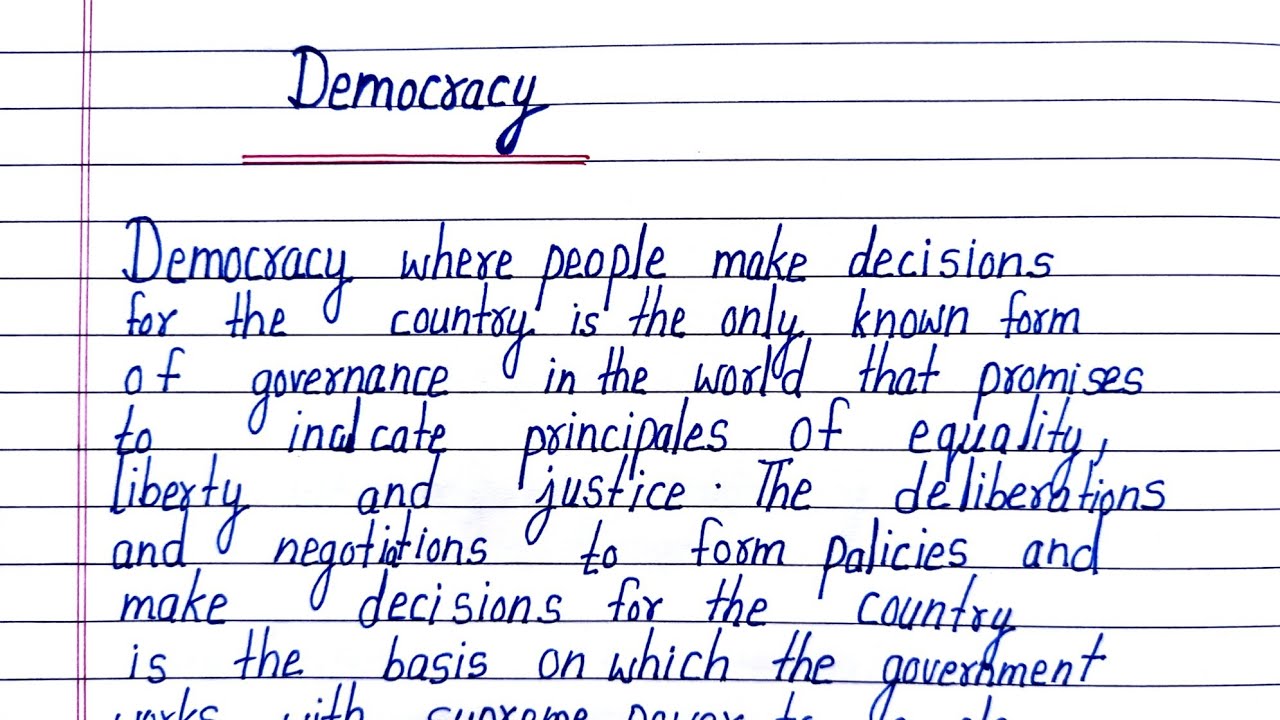 Democracy
Democracy where people make decisions
for the country is the only known form
of governance in the world that promises
to inculcate principales of equality,
liberty and justice. The deliberations
and negotiations to form palicies and
make decisions for the country
is the basis on which the government
works with supreme power to